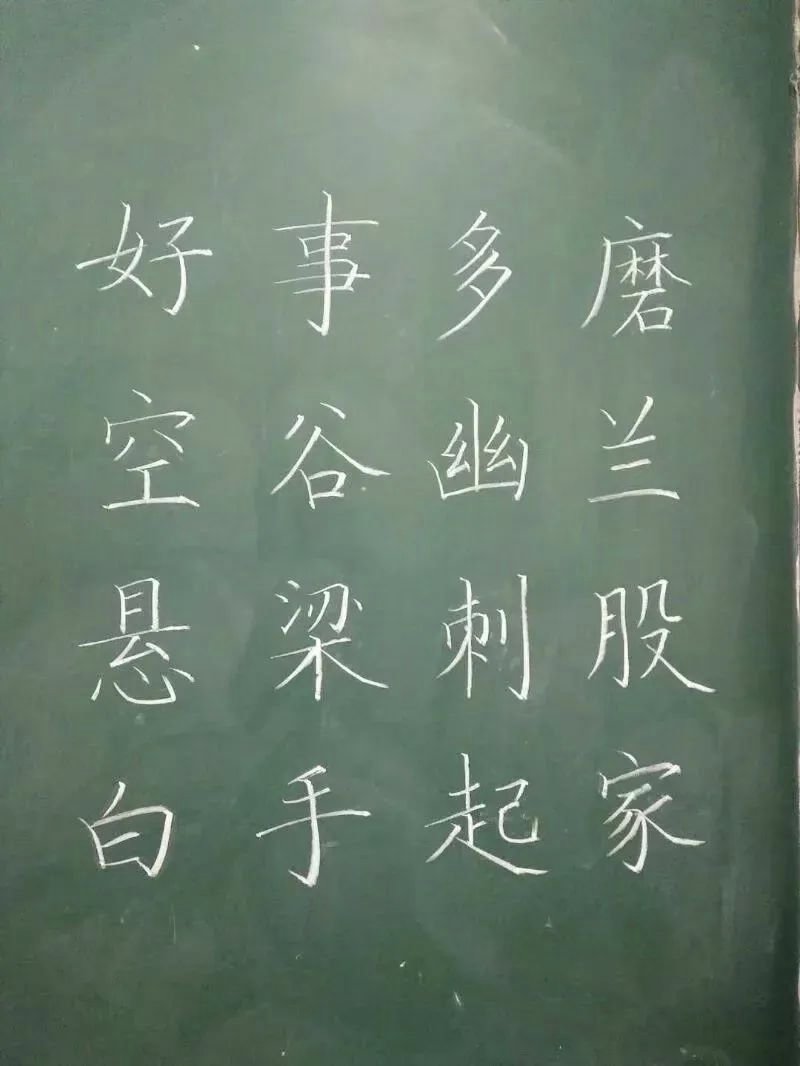 好事多磨
空谷幽兰
悬梁刺股
白手起家